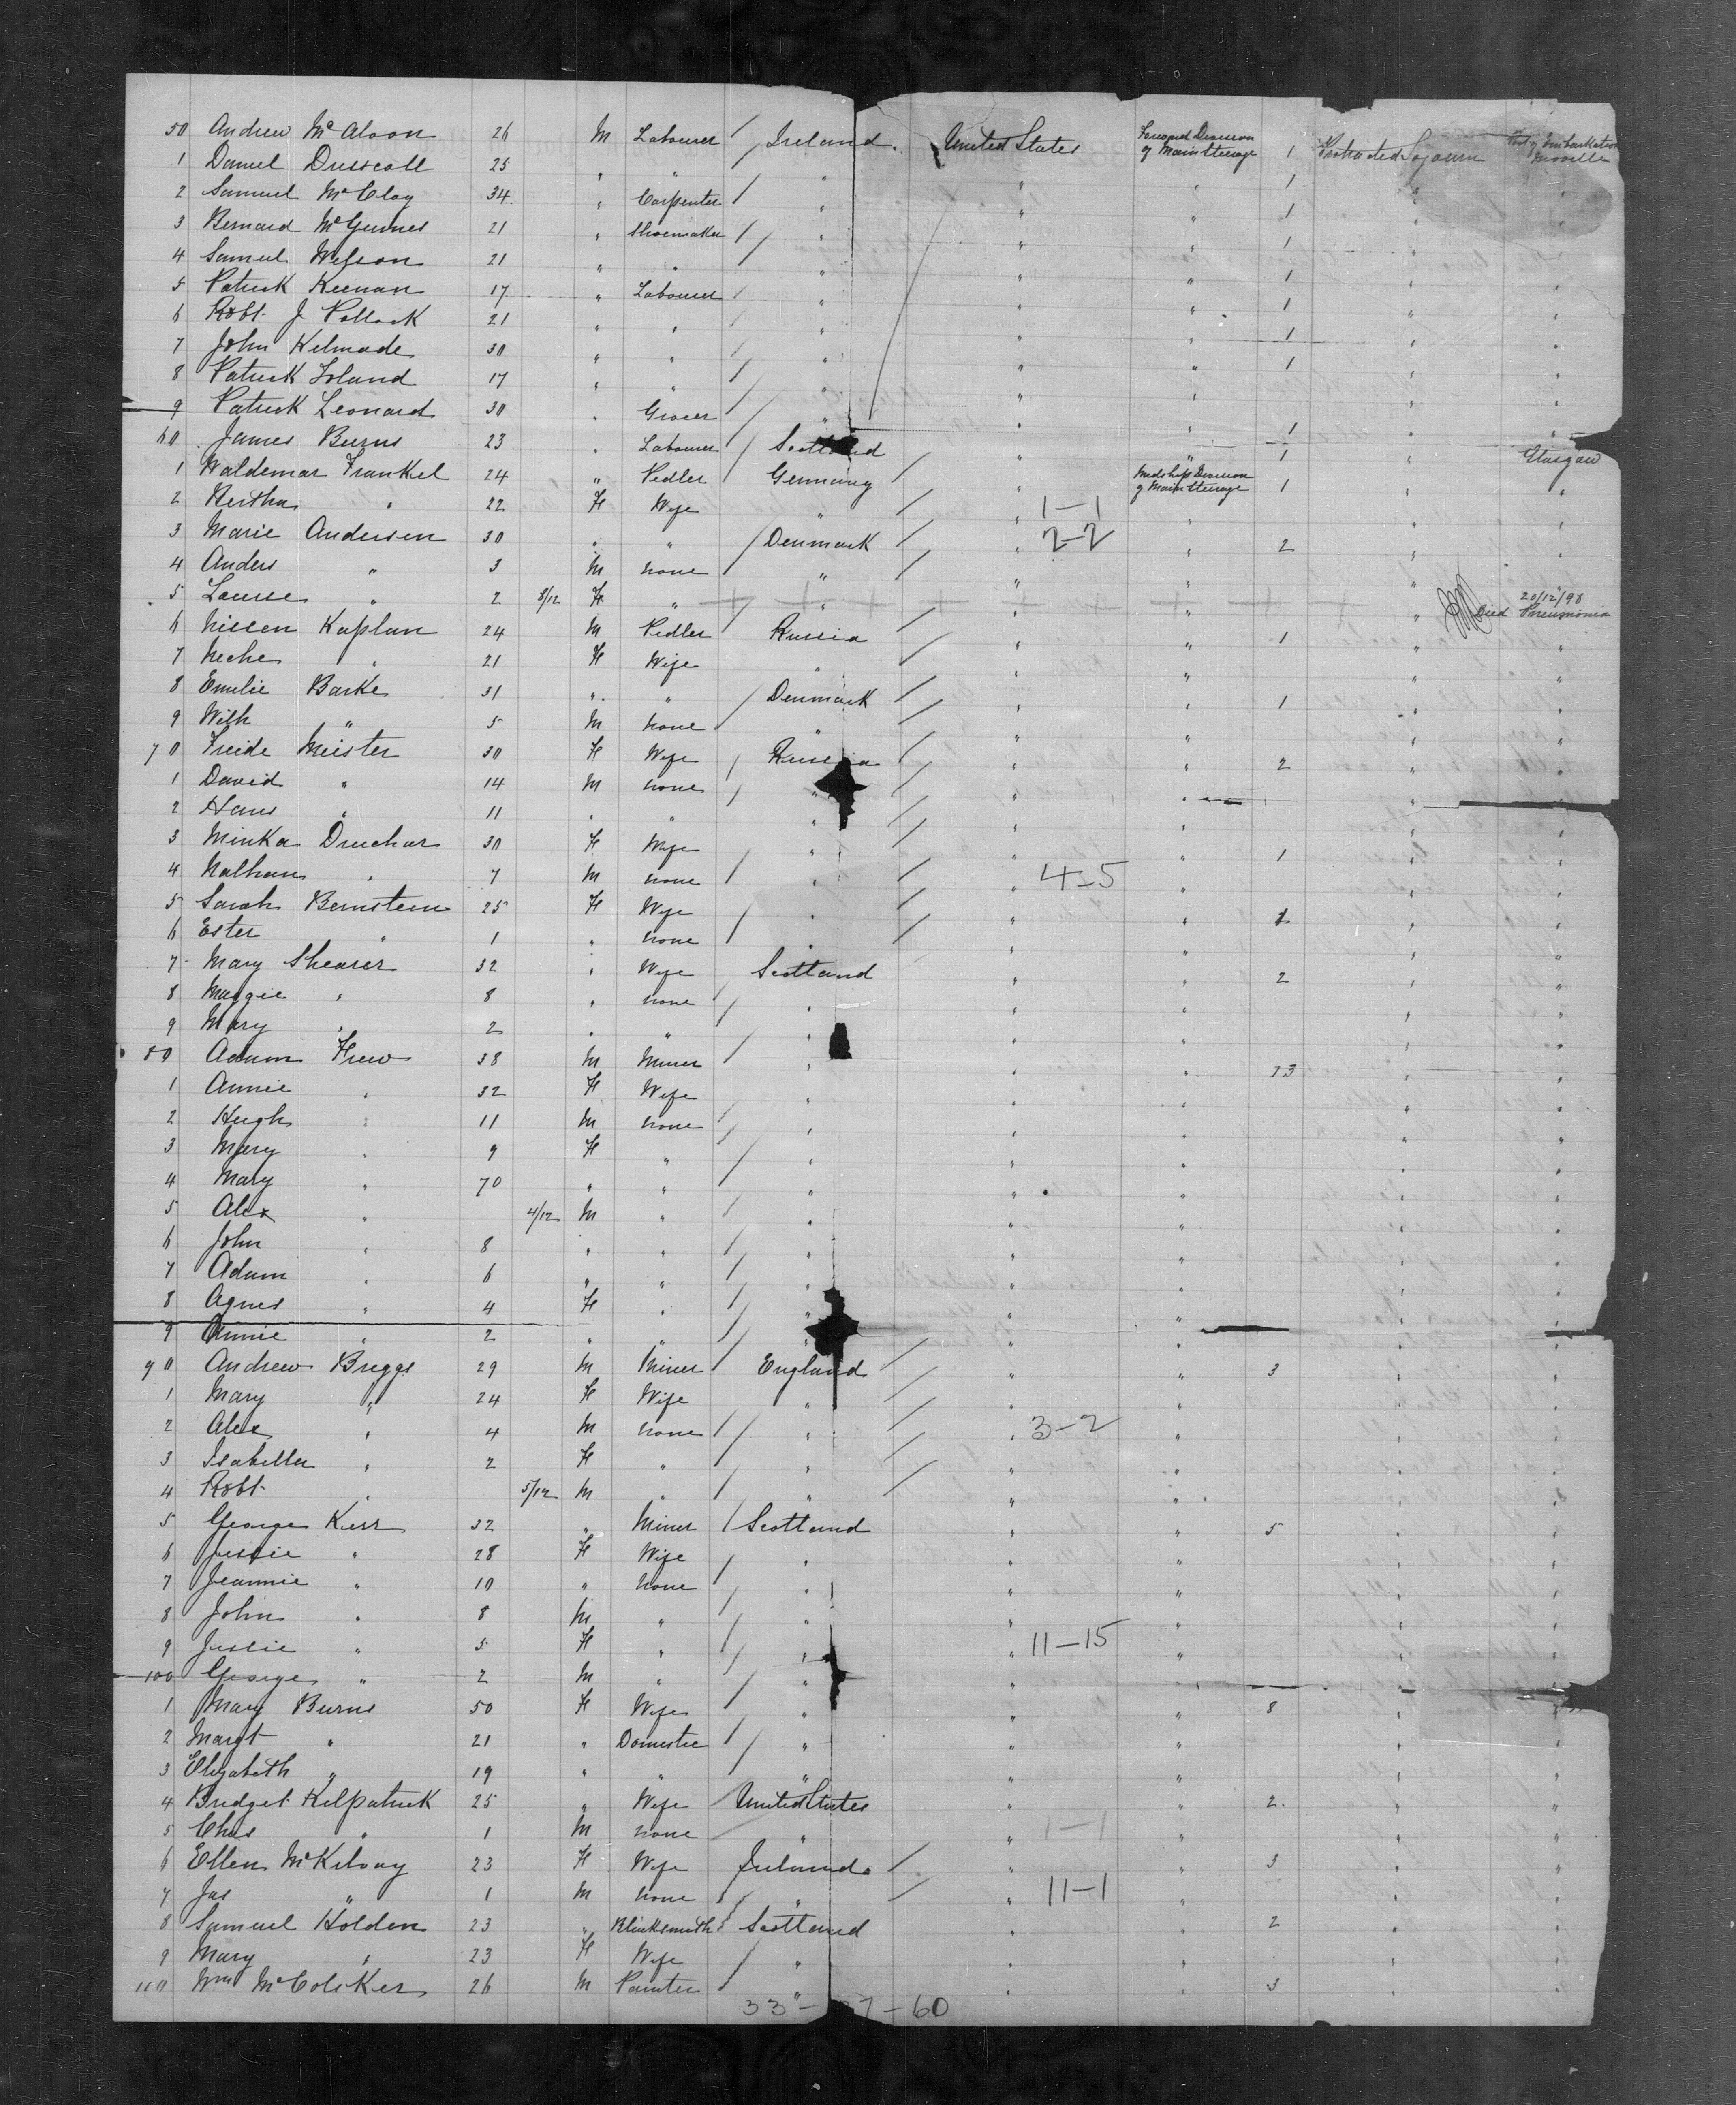 50 Andrew McAloon 26 M Labourer Ireland United States Forward Division of Main Steerage 1 Protracted Sojourn Port of Embarkation Moville
1 Daniel Driscoll 25 " " " " " 1 " "
2 Samuel McClay 34 " Carpenter " " " 1 " "
3 Bernard McGuines 21 " Shoemaker " " " 1 " "
4 Samuel Wilson 21 " " " " " 1 " "
5 Patrick Keenan 17 " Labourer " " " 1 " "
6 Robt. J Pollock 21 " " " " " 1 " "
7 John 30 " " " " " 1 " "
8 Patrick 17 " " " " "
9 Patrick Leonard 30 " Grocer " " " 1 " "
60 James Burns 23 " Labourer Scotland " " 1 " Glasgow
1 Waldemar Frankel 24 " Pedler Germany " Midships Division of Main Steerage 1 " "
2 Bertha " 22 F Wife " " 1-1 " " "
3 Marie Andersen 30 " " Denmark " 2-2 " 2 " "
4 Anders " 3 M none " " " " "
5 Laurse " 2 8/12 F " " " " " Died 20/12/98 Pneumonia
6 Nissen Kaplan 24 M Pedler Russia " " 1 " "
7 Neche " 21 F Wife " " " " "
8 Emilie Barke 31 " " Denmark " " 1 " "
9 Wilh " 5 M none " " " " "
70 Freide Meister 30 F Wife Russia " " 2 " "
1 David " 14 M none " " " " "
2 Hans " 11 " " " " " " "
3 Minka Druchar 30 F Wife " " " 1 " "
4 Nathan " 7 M none " " 4-5 " " "
5 Sarah Bernstein 25 F Wife " " " 1 " "
6 Ester " 1 " none " " " " "
7 Mary Shearer 32 " Wife Scotland " " 2 " "
8 Maggie " 8 " none " " " " "
9 Mary " 2 " " " " " " "
80 Adam Frew 38 M Miner " " " 13 " "
1 Annie " 32 F Wife " " " " "
2 Hugh " 11 M none " " " " "
3 Mary " 9 F " " " " " "
4 Mary " 70 " " " " " " "
5 Alex " 4/12 M " " " " " "
6 John " 8 " " " " " " "
7 Adam " 6 " " " " " " "
8 Agnes " 4 F " " " " " "
9 Annie " 2 " " " " " "
90 Andrew Briggs 29 M Miner England " " 3 " "
1 Mary " 24 F Wife " " " " "
2 Alex " 4 M none " " 3-2 " " "
3 Isabella " 2 F " " " " " "
4 Robt " 5/12 M " " " " " "
5 George Kerr 32 " Miner Scotland " " 5 " "
6 Jessie " 28 F Wife " " " " "
7 Jeannie " 10 " none " " " " "
8 John " 8 M " " " " " "
9 Jessie " 5 F " " " 11-15 " " "
100 George " 2 M " " " " " "
1 Mary Burns 50 F Wife " " " 8 " "
2 Margt " 21 " Domestic " " " " "
3 Elizabeth " 19 " " " " " " "
4 Bridget Kilpatrick 25 " Wife United States " " 2 " "
5 Chas " 1 M none " " 1-1 " " "
6 Ellen McKilvay 23 F Wife Ireland " " 3 " "
7 Jas " 1 M none " " 11-1 " " "
8 Samuel Holden 23 " Blacksmith Scotland " " 2 " "
9 Mary " 23 F Wife " " " " "
110 Wm McColsker 26 M Painter " " " 3 " "
33"- 27-60